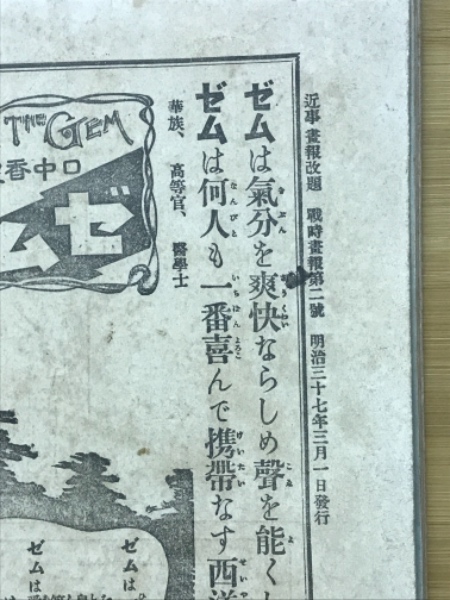 近事畫報改題　戰時畫報第二號　明治三十七年三月一日發行
ゼムは氣分を爽快ならしめ聲を能くし
ゼムは何人も一番喜んで携帶なす西洋
華族、高等官、醫學士
THE GEM
口中香
ゼム
ゼムは
ゼムは